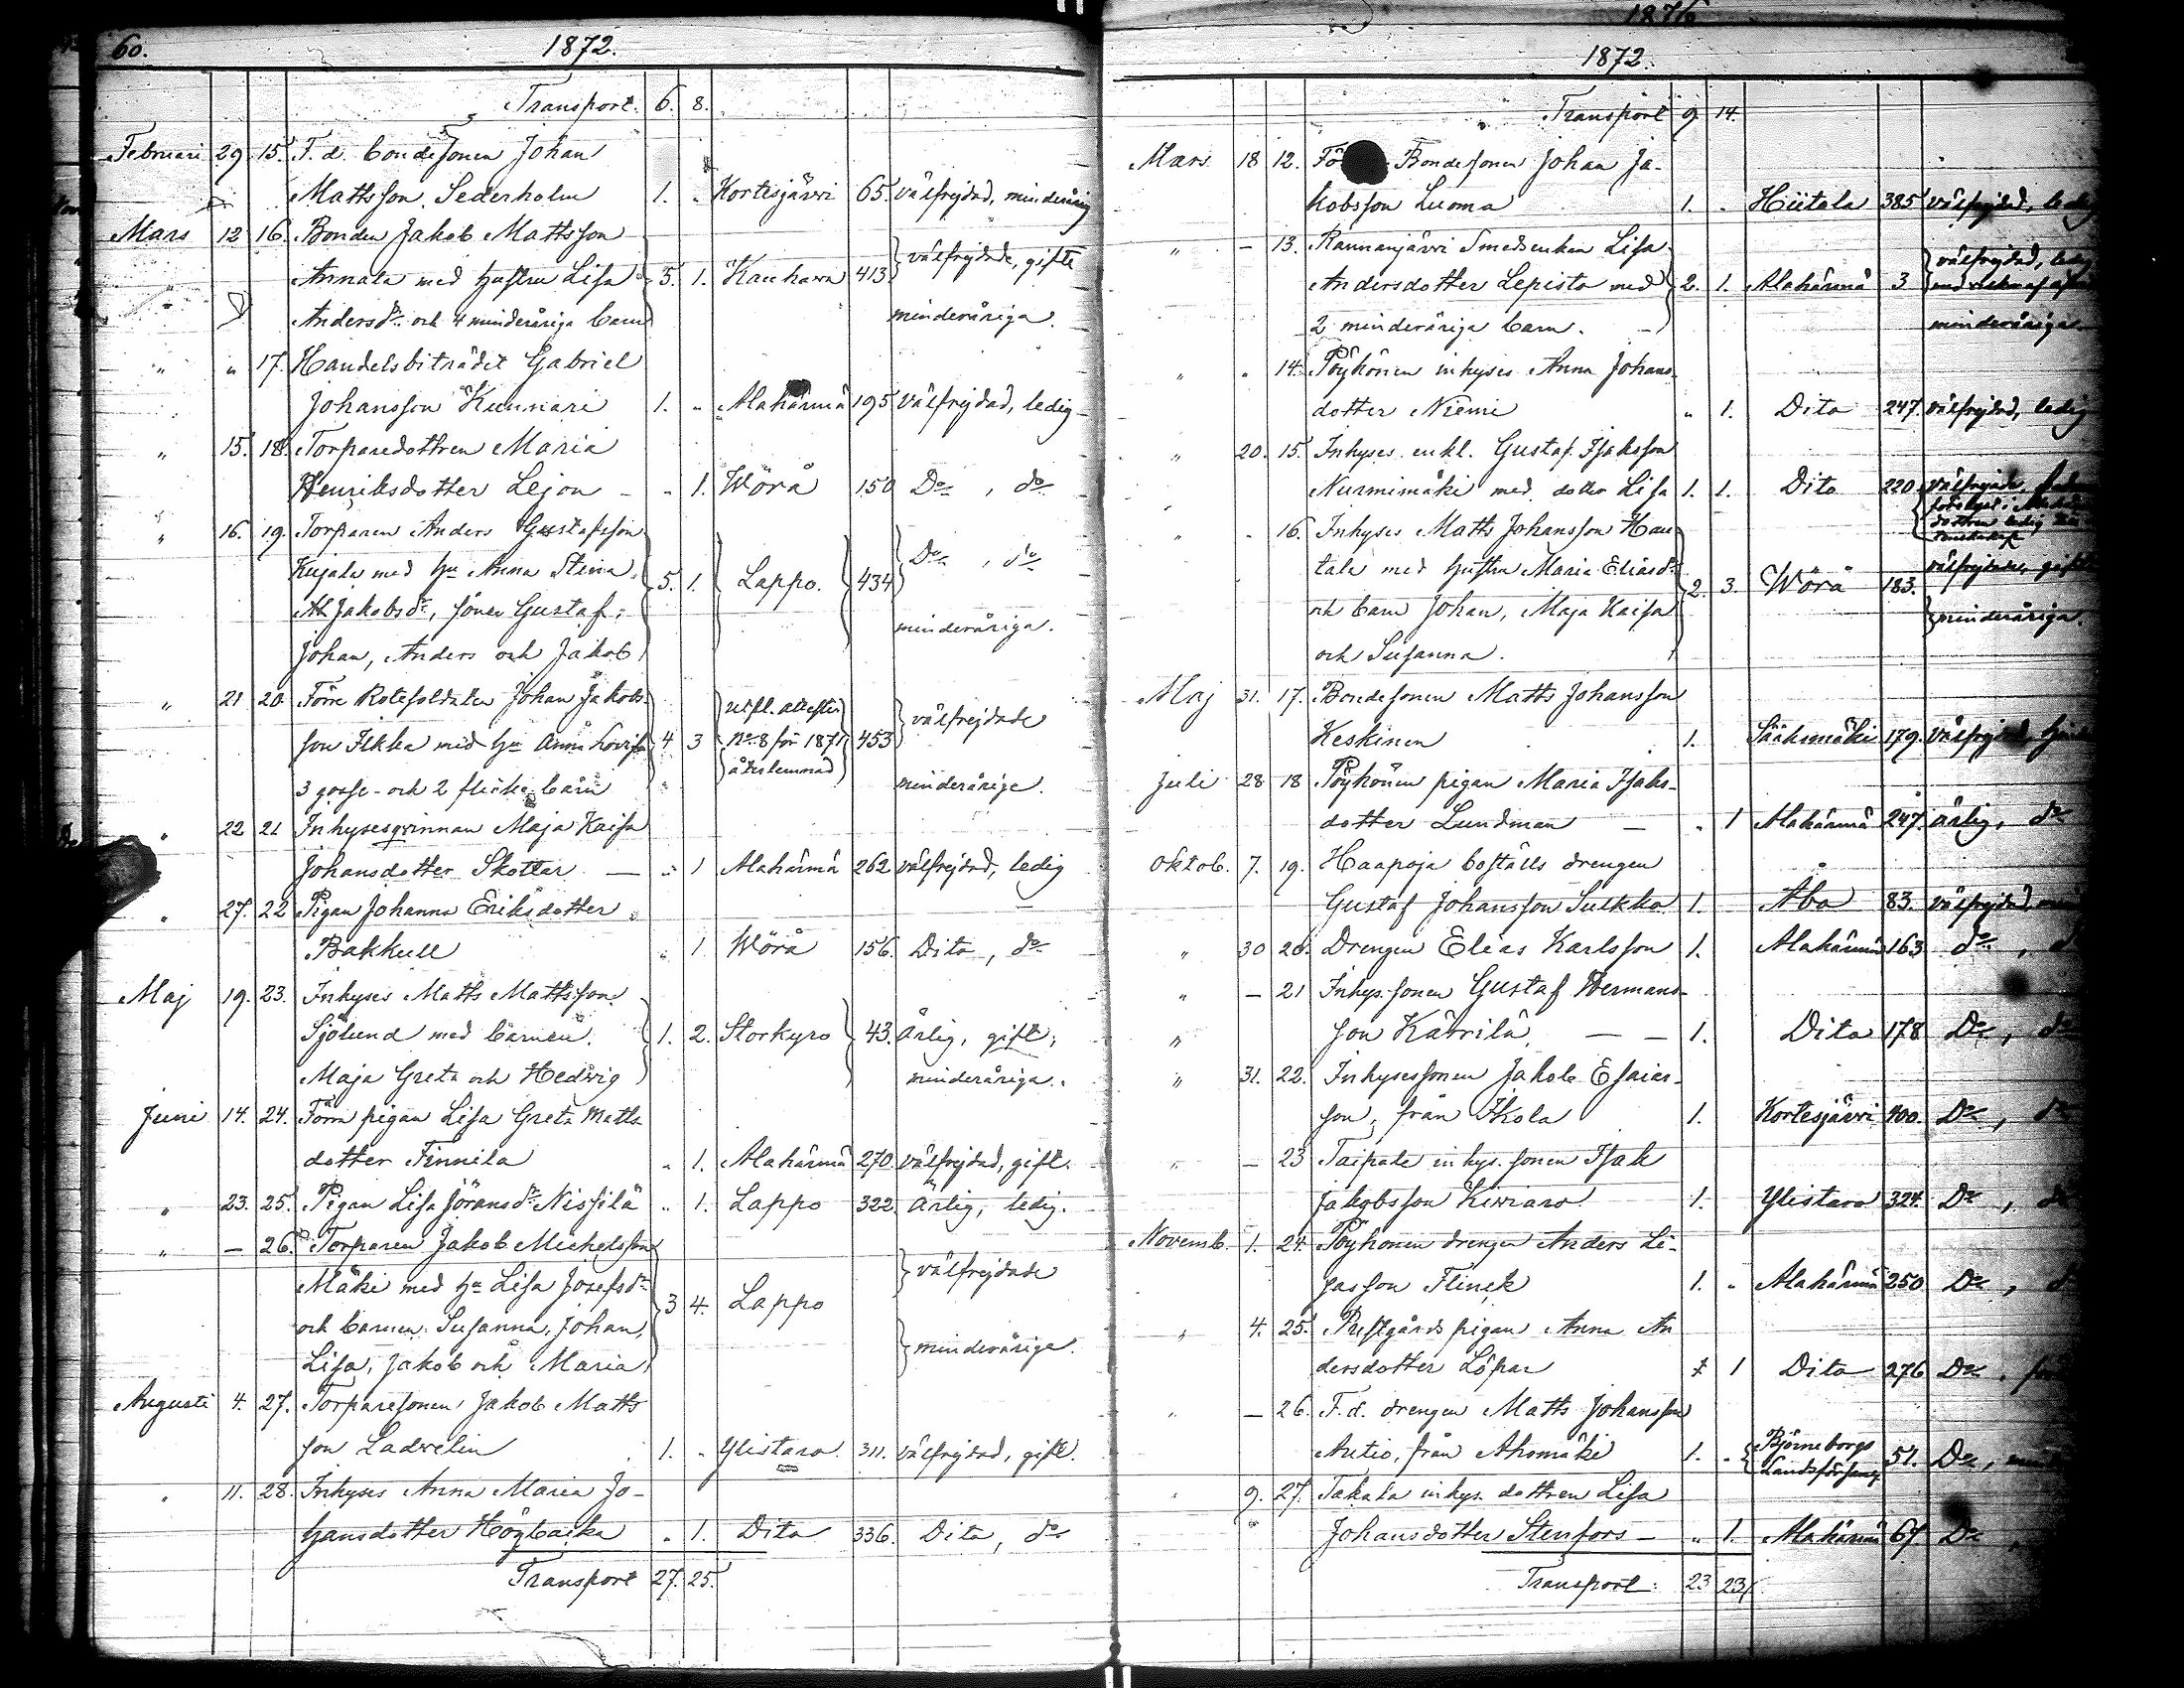 60.
1872.
Transport. 6. 8.
Februari 29 15. F. d. bondesonen Johan
Mattsson Sederholm 1. „ Kortesjärvi 65. välfrejdad, minderårig
Mars 12 16. Bonden Jakob Mattsson
Annala med hustru Lisa 5. 1. Kauhava 413 välfrejdade, gifte
Andersdr. och 4 minderåriga barn minderåriga.
„ „ 17. Handelsbiträdet Gabriel
Johansson Kunnari 1. „ Alahärmä 195 välfrejdad, ledig
„ 15. 18. Torparedottren Maria
Henriksdotter Lejon - „ 1. Wörå 150 Do , do
„ 16. 19. Torparen Anders Gustafsson
Kujala med hu Anna Stina 5. 1. Lappo. 434 Do , do
Jakobsdr, söner Gustaf,
minderåriga.
Johan, Anders och Jakob
„ 21 20. Förre Rotesoldaten Johan Jakobs-
son Ikkla med hu Anna Lovisa 4 3 No 8 för 1871 453 välfrejdade
återlemnad
3 gosse- och 2 flicke barn minderårige.
„ 22 21 Inhysesqvinnan Maja Kaisa
Johansdotter Skottar — „ 1 Alahärmä 262 välfrejdad, ledig
„ 27. 22 Pigan Johanna Eriksdotter
Bakkull „ 1 Wörå 156. Dito, do
Maj 19. 23. Inhyses Matts Mattsson
Sjölund med barnen 1. 2. Storkyro 43. Ärlig, gift,
Maja Greta och Hedwig minderåriga.
Juni 14. 24. Förra pigan Lisa Greta Matts
dotter Finnila „ 1. Alahärmä 270. välfrejdad, gift.
„ 23. 25. Pigan Lisa Göransdr Nissilä „ 1. Lappo 322. ärlig, ledig.
„ — 26. Torparen Jakob Michelsson
Mäki med hu Lisa Josefsdr 3 4. Lappo välfrejdade
och barnen Susanna, Johan,
Lisa, Jakob och Maria, minderårige.
Augusti 4. 27. Torparesonen Jakob Matts
son Ladvelin 1. „ Ylistaro. 311. välfrejdad, gift.
„ 11. 28. Inhyses Anna Maria Jo-
hansdotter Högbacka „ 1. Dito 336. Dito, do
Transport 27. 25.
1876
1872.
Transport 9 14.
Mars 18 12. Bondesonen Johan Ja-
kobsson Luoma 1. „ Hiitola 385 välfrejdad, ledig
„ — 13. Rannanjärvi Smedsenkan Lisa
Andersdotter Lepistö med 2. 1. Alahärmä 3 välfrejdad,
2 minderåriga barn. — minderåriga.
„ „ 14. Pöyhönen inhyses Anna Johans-
dotter Niemi „ 1. Dito 247. välfrejdad, ledig
„ 20. 15. Inhyses enkl. Gustaf Isaksson
Nurmimäki med dotter Lisa 1. 1. Dito 220
„ „ 16. Inhyses Matts Johansson Hau
tala med hustru Maria Eliasdr 2. 3. Wörå 183. välfrejdade,
och barn Johan, Maja Kaisa minderåriga.
och Susanna.
Maj 31. 17. Bondesonen Matts Johansson
Keskinen 1. Sääksmäki 179.
Juli 28 18 Pöyhönen pigan Maria Isaks-
dotter Lundman — „ 1 Alahärmä 247. ärlig, do
Oktob. 7. 19. Haapoja boställs drengen
Gustaf Johansson Sulkko 1. Åbo 83.
„ 30 20. Drengen Elias Karlsson 1. Alahärmä 163 do,
„ — 21 Inhys. sonen Gustaf Hermans-
„ son Kärrilä — — 1. Dito 178 Do, do
„ 31. 22. Inhysessonen Jakob Esaias-
son, från Ikola 1. Kortesjärvi 400. Do, do
„ — 23 Taipale inhys. sonen Isak
Jakobsson Kiviaro 1. Ylistaro 324. Do,
Novemb. 1. 24. Pöyhönen drengen Anders Li-
sasson Flinck 1. „ Alahärmä 250 Do,
„ 4. 25. Prestgårds pigan Anna An
dersdotter Löpar 1 Dito 276 Do
„ — 26. F. d. drengen Matts Johansson
Autio, från Ahomäki 1. „ Björneborgs 51. Do,
Landsförsaml
„ 9. 27. Takala inhys. dottren Lisa
Johansdotter Stenfors — „ 1. Alahärmä 67 Do
Transport: 23 23